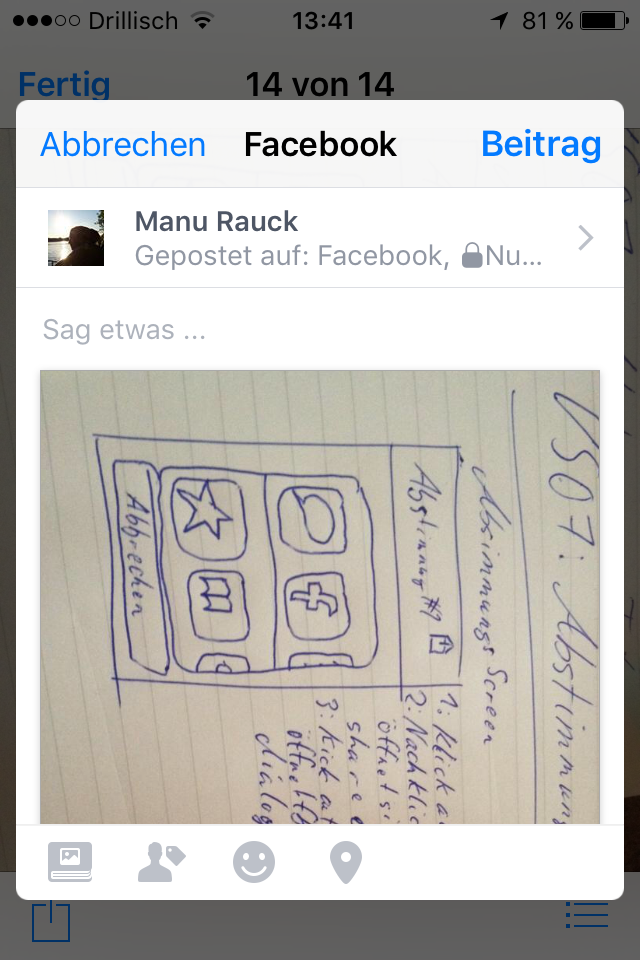 Drillisch
13:41
81 %
Fertig
14 von 14
Abbrechen
Facebook
Beitrag
Manu Rauck
Gepostet auf: Facebook, Nu...
Sag etwas ...
VS07: Abstimmung
Absimmungs Screen
Abstimmung #1
Abbrechen
1: Klick a
2: Nachklic
öffnet si
share
3: Kick auf
öffnet FB
dialog